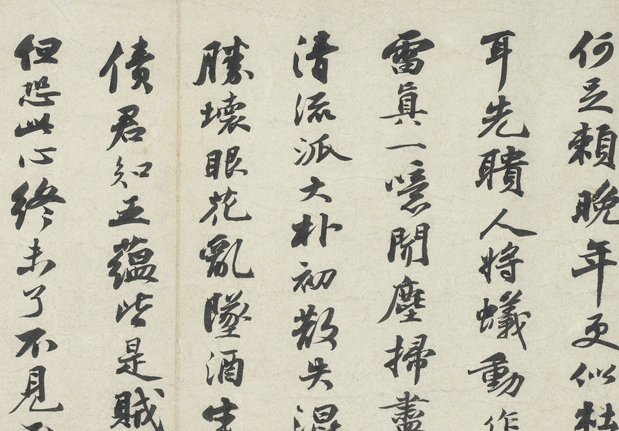 何足賴晚年更似杜
耳先聵人將蟻動作
雷真一噫閒塵掃盡
清流派大朴初散失混
勝壞眼花亂墜酒生
債君知五蘊皆是賊
但恐此心終未了不見不